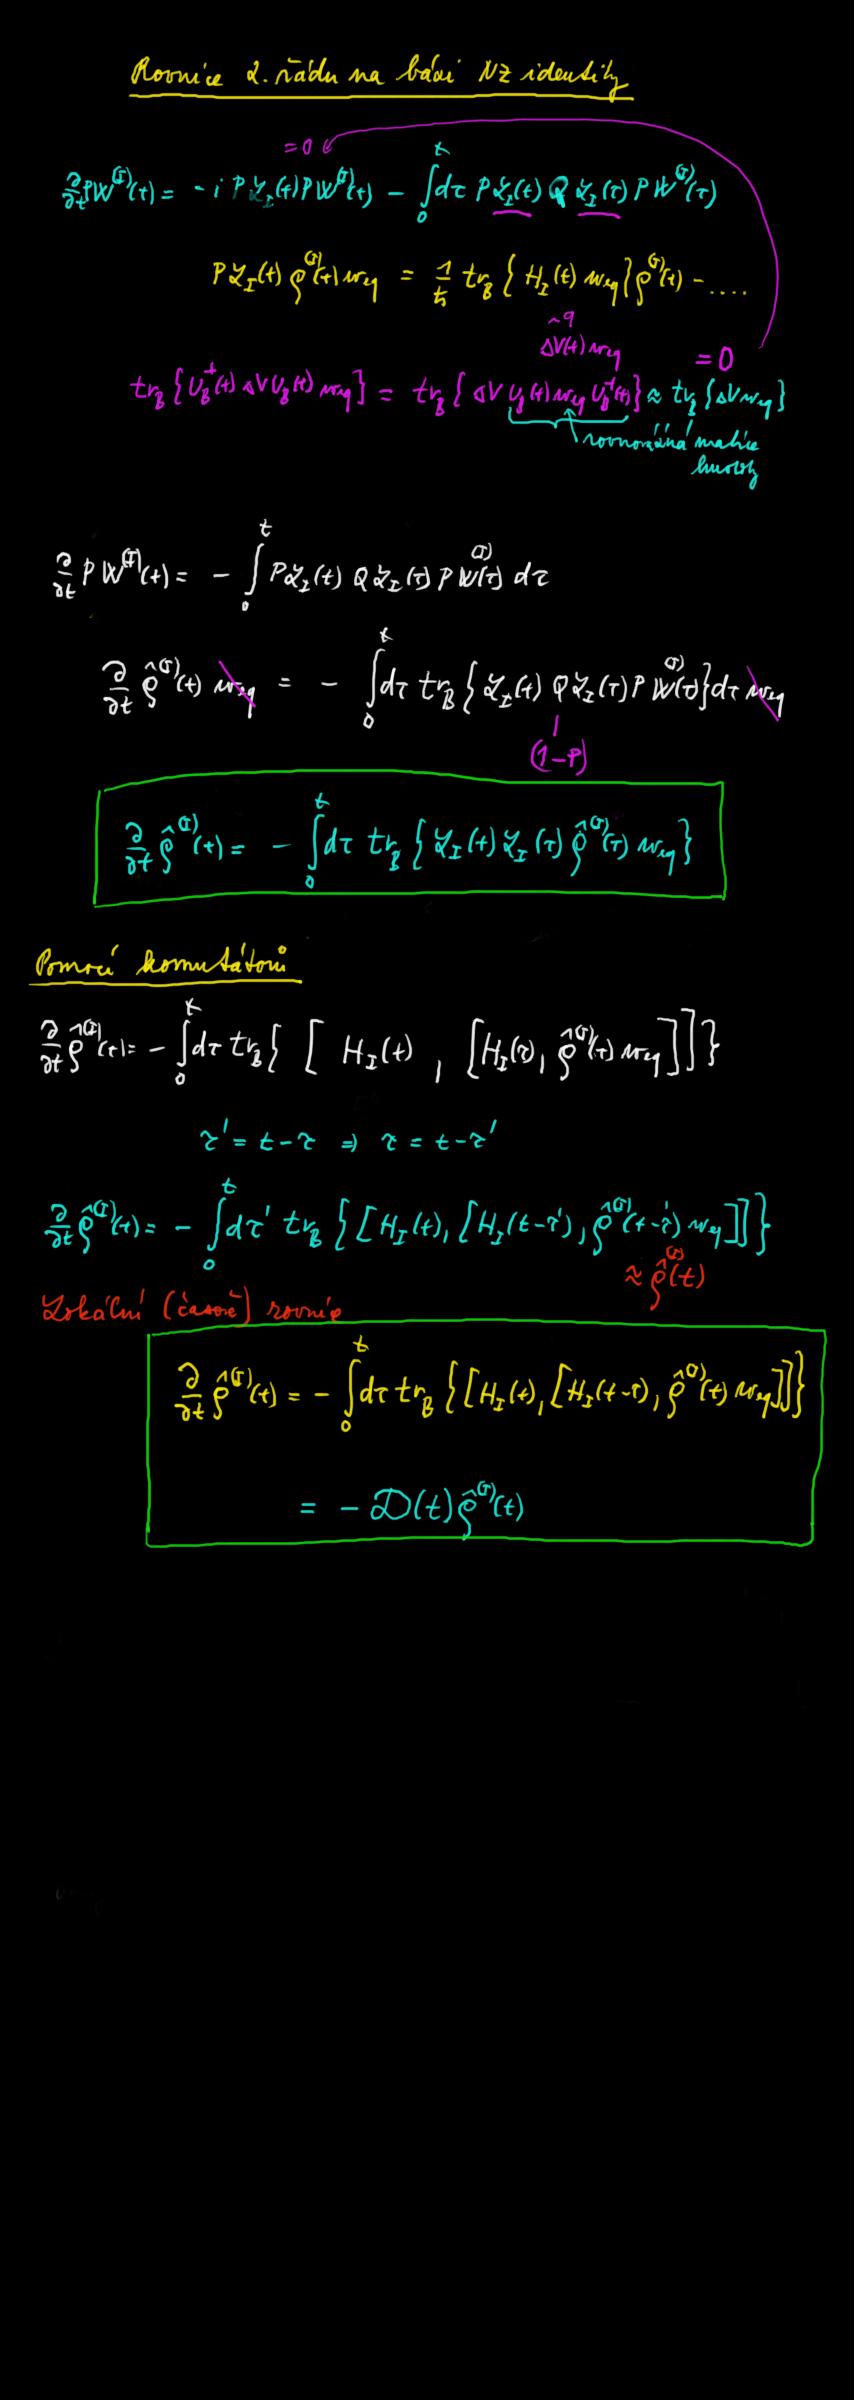 Rovnice 2. řádu na bázi NZ identity
= 0
∂/∂t PW^(I)(t) = - i P ℒ_I(t) P W^(I)(t) - ∫_0^t dτ P ℒ_I(t) Q ℒ_I(τ) P W^(I)(τ)
P ℒ_I(t) ρ^(I)(t) w_eq = 1/ħ tr_B { H_I(t) w_eq } ρ^(I)(t) - ....
ΔV(t) w_eq
= 0
tr_B { U_B^+(t) ΔV U_B(t) w_eq } = tr_B { ΔV U_B(t) w_eq U_B^+(t) } ≈ tr_B { ΔV w_eq }
rovnovážná matice
hustoty
∂/∂t P W^(I)(t) = - ∫_0^t P ℒ_I(t) Q ℒ_I(τ) P W^(I)(τ) dτ
∂/∂t ρ̂^(I)(t) w_eq = - ∫_0^t dτ tr_B { ℒ_I(t) Q ℒ_I(τ) P W^(I)(τ) } dτ w_eq
(1-P)
∂/∂t ρ̂^(I)(t) = - ∫_0^t dτ tr_B { ℒ_I(t) ℒ_I(τ) ρ̂^(I)(τ) w_eq }
Pomocí komutátorů
∂/∂t ρ̂^(I)(t) = - ∫_0^t dτ tr_B { [ H_I(t) , [ H_I(τ), ρ̂^(I)(τ) w_eq ] ] }
τ' = t - τ ⇒ τ = t - τ'
∂/∂t ρ̂^(I)(t) = - ∫_0^t dτ' tr_B { [ H_I(t), [ H_I(t-τ'), ρ̂^(I)(t-τ') w_eq ] ] }
≈ ρ̂^(I)(t)
Lokální (časově) rovnice
∂/∂t ρ̂^(I)(t) = - ∫_0^t dτ tr_B { [ H_I(t), [ H_I(t-τ), ρ̂^(I)(t) w_eq ] ] }
= - 𝒟(t) ρ̂^(I)(t)